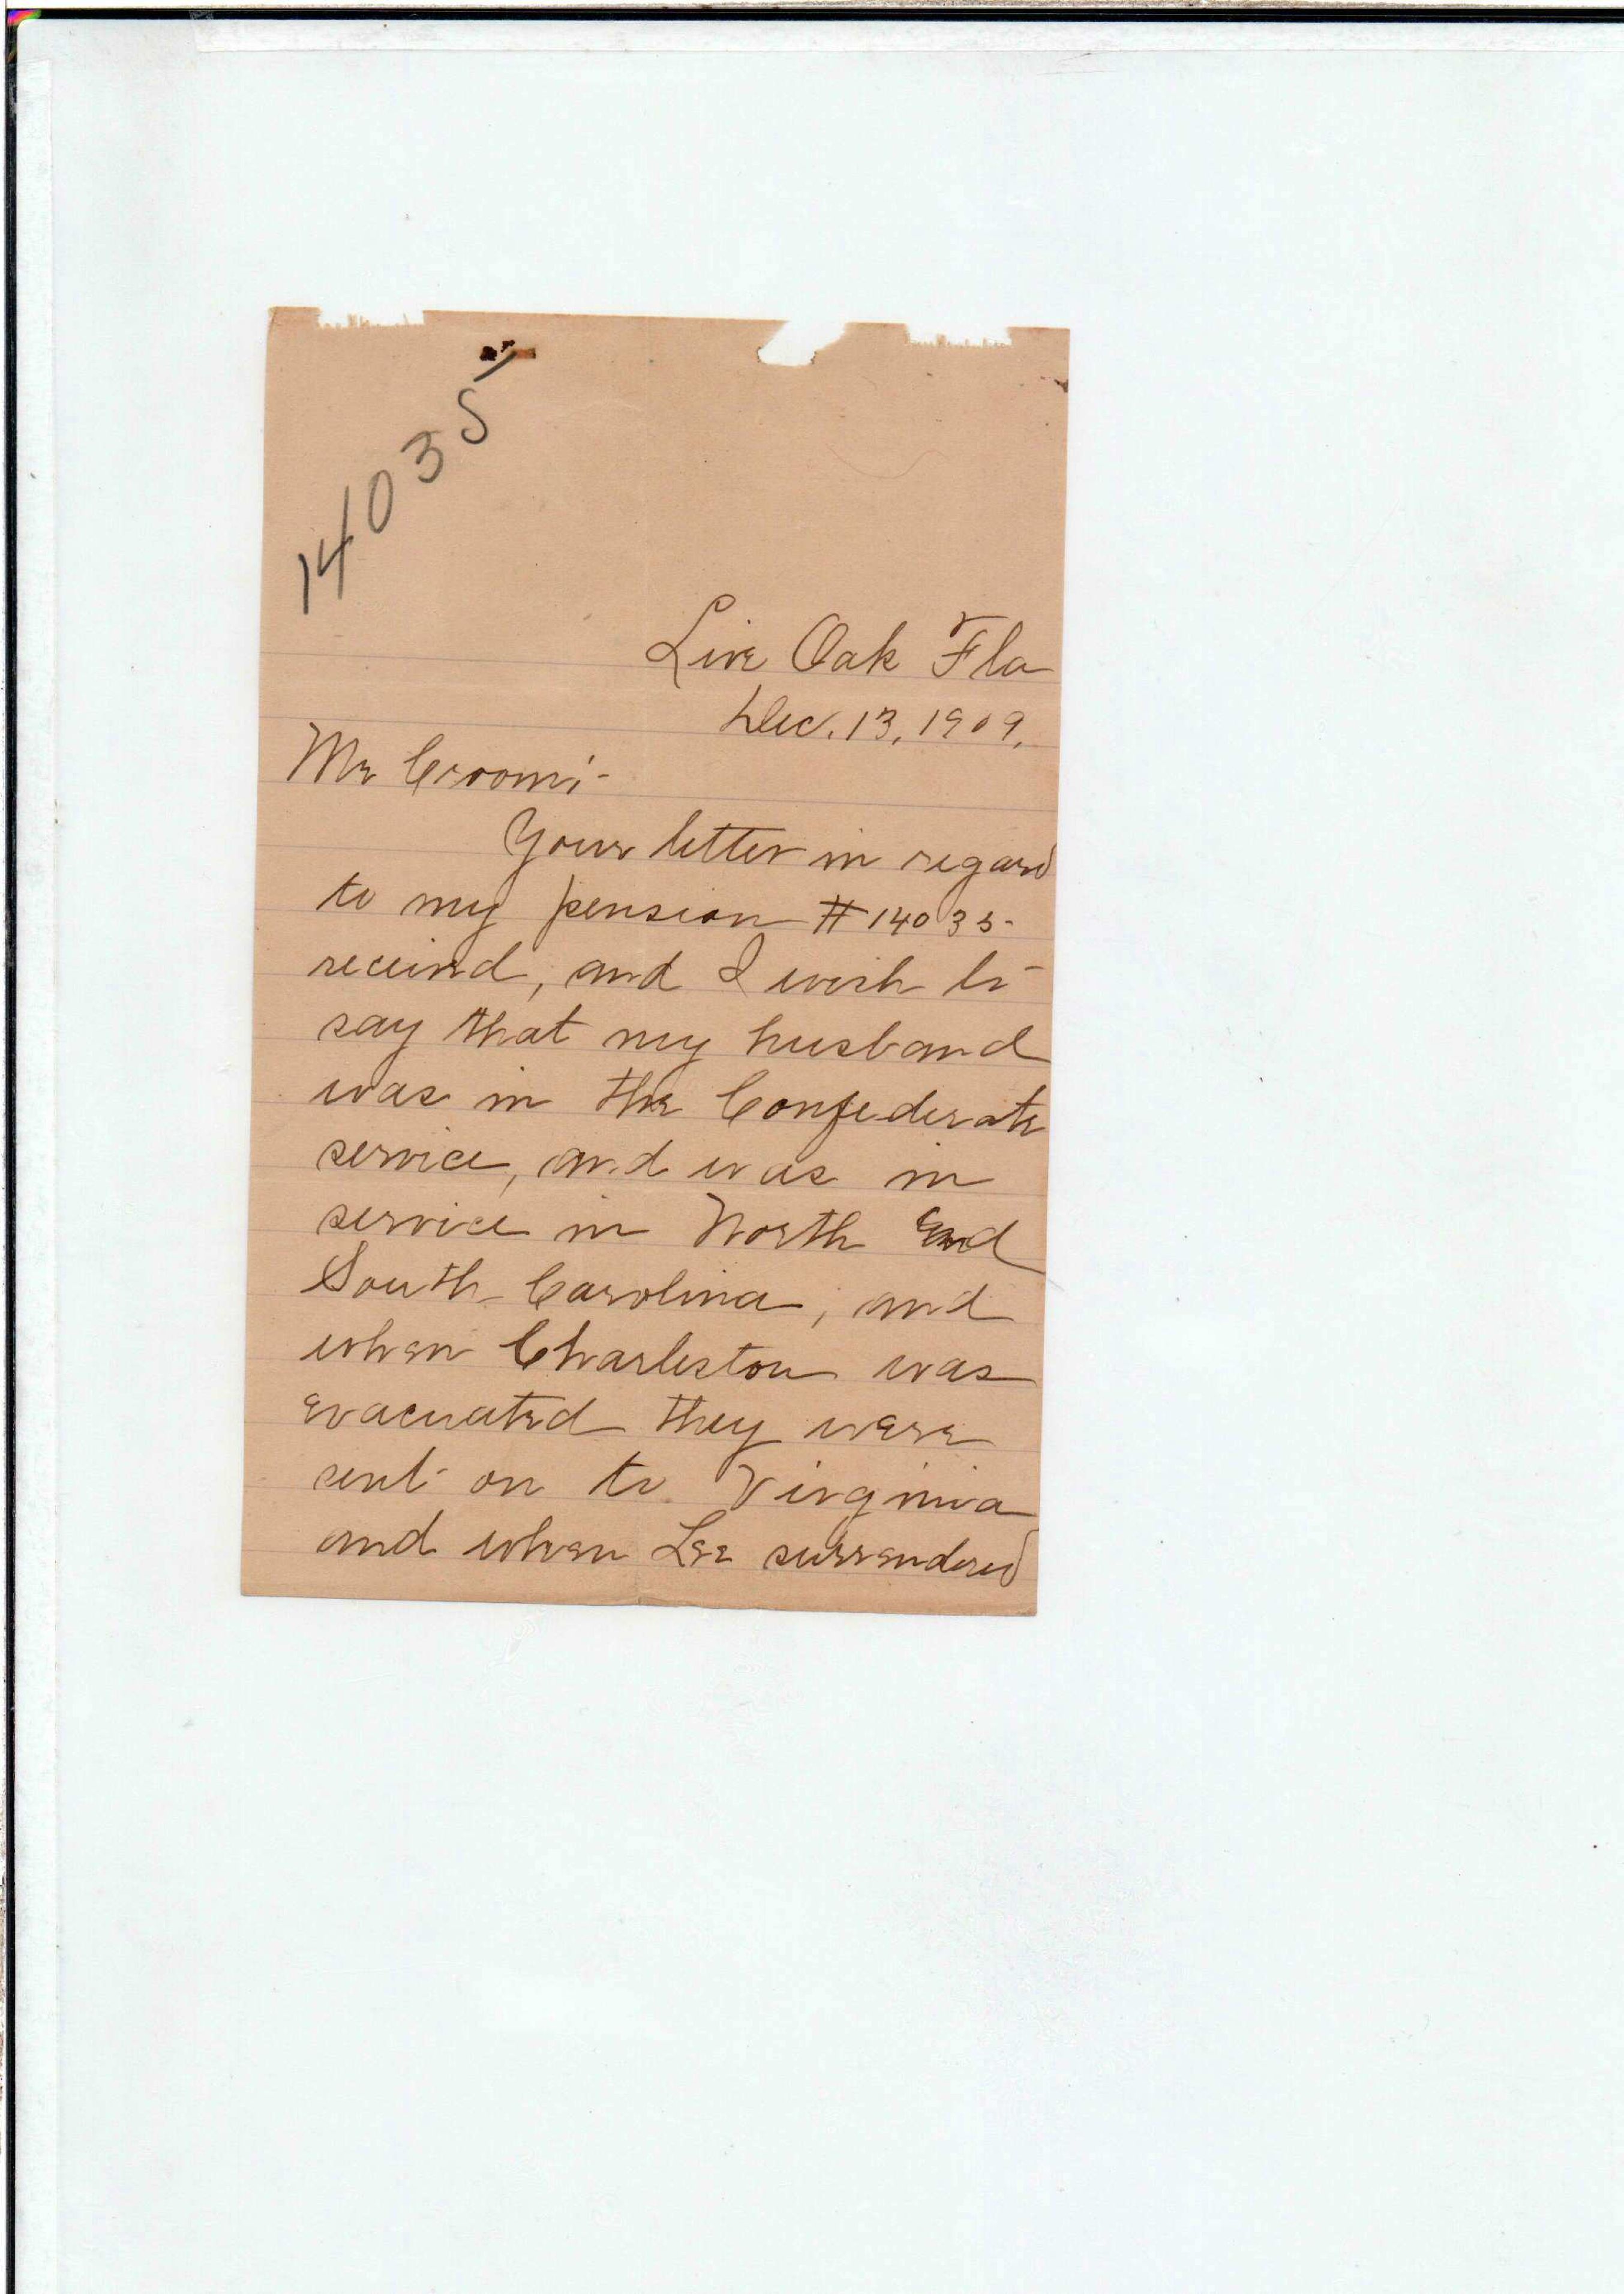 14035
Live Oak Fla
Dec. 13, 1909.
Mr Croom;-
Your letter in regard
to my pension #14035-
received, and I wish to
say that my husband
was in the Confederate
service, and was in
service in North and
South Carolina, and
when Charleston was
evacuated they were
sent on to Virginia
and when Lee surrendered